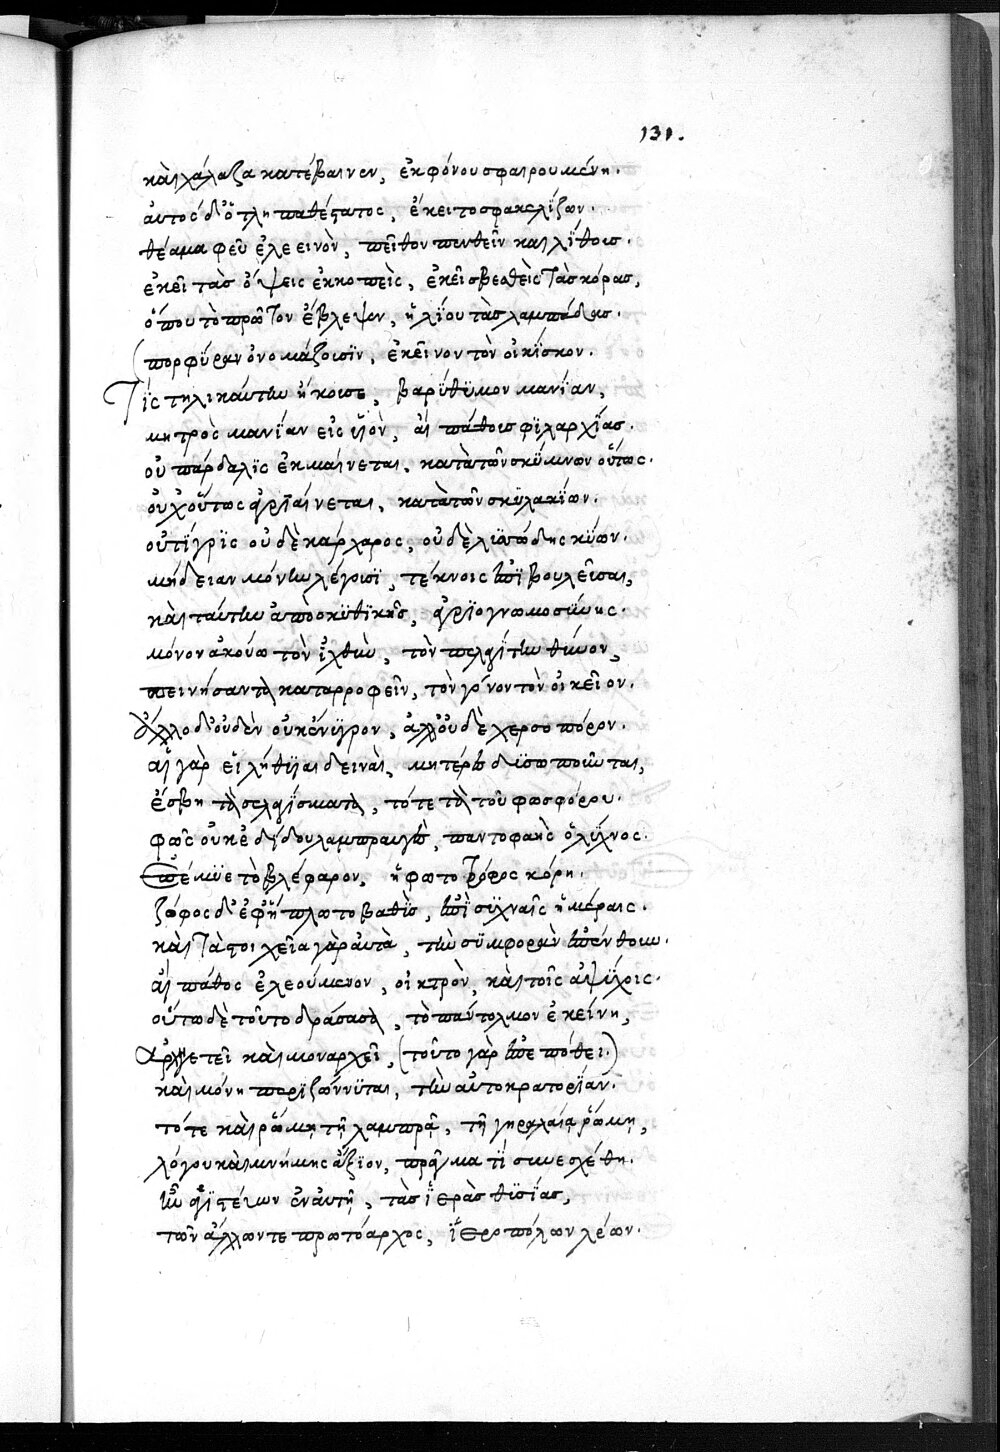 131.
καὶ χάλαζα κατέβαινεν, ἐκ φόνου σφαιρουμένη.
αὐτὸς δ' ὁ τλη παθέστατος, ἔκειτο σφακελίζων.
θέαμα φεῦ ἐλεεινὸν, πεῖθον πενθεῖν καὶ λίθους.
ἐκεῖ τὰς ὄψεις ἐκκοπεὶς, ἐκεῖ σβεσθεὶς τὰς κόρας,
ὅπου τὸ πρῶτον ἔβλεψεν, ἡλίου τὰς λαμπάδας.
πορφύραν ὀνομάζουσιν, ἐκεῖνον τὸν οἰκίσκον.
Τίς τηλικαύτην ἤκουσε, βαρύθυμον μανίαν,
μητρὸς μανίαν εἰς υἱὸν, αἲ πάθους φιλαρχίας.
οὐ πάρδαλις ἐκμαίνεται, κατὰ τῶν σκύμνων οὕτως.
οὐχ οὕτως ἀγριαίνεται, κατὰ τῶν σκυλακίων.
οὐ τίγρις οὐδὲ κάρχαρος, οὐδὲ λιπώδης κύων.
μήδειαν μόνην λέγουσι, τέκνοις ἐπιβουλεῦσαι,
καὶ ταύτην ἀπὸ σκυθικῆς, ἀγριογνωμοσύνης.
μόνον ἀκούω τὸν ἰχθὺν, τὸν πελαγίτην θύνον,
πεινήσαντα καταρροφεῖν, τὸν γόνον τὸν οἰκεῖον.
ἄλλο δ' οὐδὲν οὐκ ἔνυγρον, ἀλλ' οὐδὲ χερσοπόρον.
αἲ γὰρ εἰλήθυιαι δειναὶ, μητέρες δυσωποῦνται,
ἔσβη τὰ σελαγίσματα, τότε τὰ τοῦ φωσφόρου.
φῶς οὐκ ἐδίδου λαμπραυγὲς, παντοφαὴς ὁ λύχνος.
ἐπέμυε τὸ βλέφαρον, ἡ φωτοτρόφος κόρη.
ζόφος δ' ἐφήπλωτο βαθὺς, ἐπὶ συχναῖς ἡμέραις.
καὶ τὰ στοιχεῖα γὰρ αὐτὰ, τὴν συμφορὰν ἐπένθουν.
αἲ πάθος ἐλεούμενον, οἰκτρὸν, καὶ τοῖς ἀψύχοις.
οὕτω δὲ τοῦτο δράσασα, τὸ πάντολμον ἐκείνη,
ἀρχηγετεῖ καὶ μοναρχεῖ, (τοῦτο γὰρ ἐπεπόθει.)
καὶ μόνη περιζώννυται, τὴν αὐτοκρατορίαν.
τότε καὶ ῥώμῃ τῇ λαμπρᾷ, τῇ γηραλαίᾳ ῥώμῃ,
λόγου καὶ μνήμης ἄξιον, πρᾶγμά τι συνεσχέθη.
ἦν ἁγιστεύων ἐν αὐτῇ, τὰς ἱερὰς θυσίας,
τῶν ἄλλων τε πρωτόαρχος, ἱεροπόλων λέων.